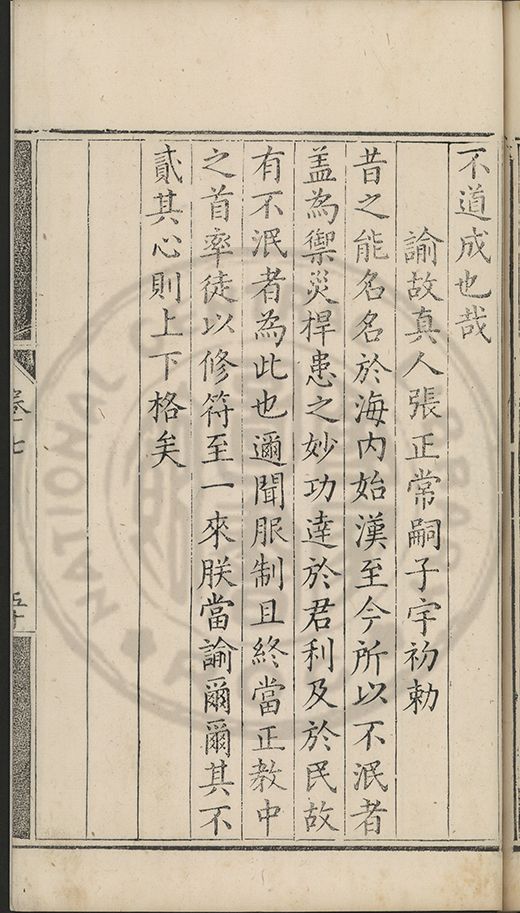 不道成也哉
諭故真人張正常嗣子宇初勅
昔之能名名於海内始漢至今所以不泯者
盖為禦災捍患之妙功達於君利及於民故
有不泯者為此也邇聞服制且終當正教中
之首率徒以修符至一來朕當諭爾爾其不
貳其心則上下格矣
卷十七
五十